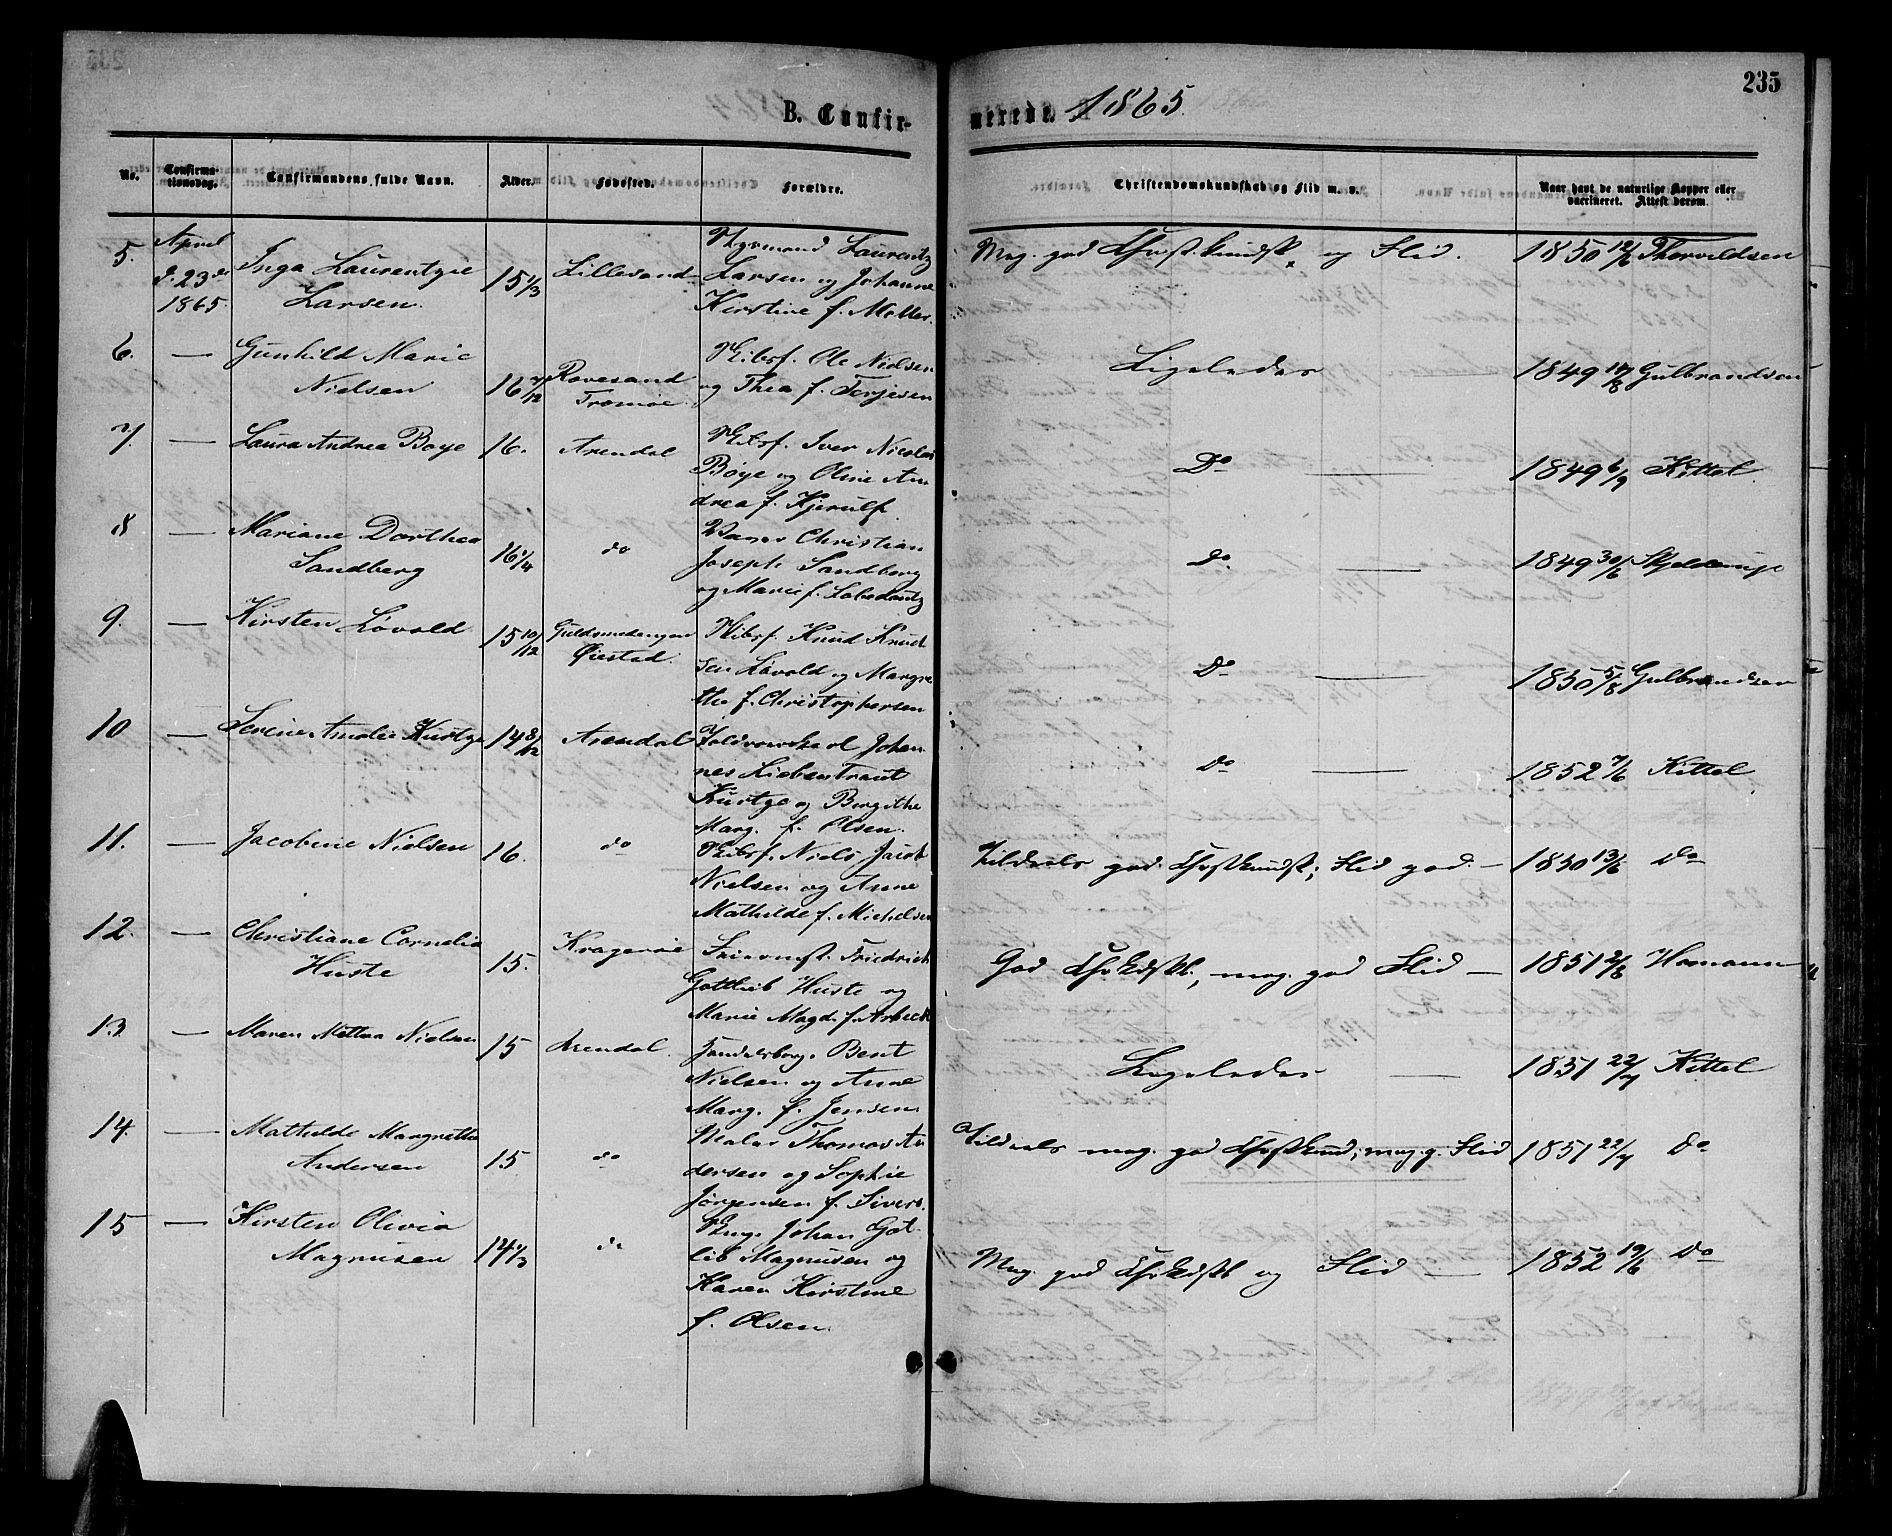 235
B. Confir- merede 1865.
No. Confirma-tionsdag. Confirmandens fulde Navn. Alder. Fødested. Forældre. Christendomskundskab og Flid m. v. Naar havt de naturlige Kopper eller vaccineret. Attest derom.
5. April d. 23de 1865. Inga Laurentzie Larsen. 15 1/3 Lillesand Laurentz Larsen og Johanne Kirstine f. Møller. Meg. god Christ. kundsk. og Flid. 1850 12/6 Thorvildsen
6. — Gunhild Marie Nielsen 16 7/12 Revesand Tromøe. Ole Nielsen og Thea f. Terjesen Ligeledes 1849 14/8 Gulbrandsen
7. — Laura Andrea Boye 16. Arendal Iver Nicolai Boye og Oline Andrea f. Kjerulf. Do — 1849 6/9 Kittel.
8 — Mariane Dorthea Sandberg 16 1/4 do Christian Joseph Sandberg og Marie f. Do — 1849 30/6 Skjelderup
9. — Kirsten Løvold 15 10/12 Guldsmedengen Øiestad. Knud Knudsen Løvold og Margrethe f. Christophersen Do — 1850 5/8 Gulbrandsen
10 — Serine Amalie Kurtze 14 8/12 Arendal Johannes Liebentraut Kurtze og Bergithe Marg. f. Olsen. Do — 1852 7/6 Kittel
11. — Jacobine Nielsen 16. do Niels Jacob Nielsen og Anne Mathilde f. Michelsen Tildeels god Chrstkundsk; Flid god — 1850 13/6 Do
12. — Christiane Cornelia Huste 15. Kragerøe Friedrich Gottlieb Huste og Marie Magd. f. Arbeck God Chrkdskb, meg. god Flid — 1851 2/8 Homann
13. — Maren Mettea Nielsen 15 Arendal. Bent Nielsen og Anne Marg. f. Jensen. Ligeledes — 1851 22/7 Kittel
14. — Mathilde Margrethe Andersen 15 do Maler Thomas Andersen og Sophie Jørgensen f. Sivers. Tildeels meg. god Chrstkund; meg. g. Flid 1851 22/7 Do
15 — Kirsten Olivia Magnusen 14 1/3 do Johan Gotlib Magnusen og Karen Kirstine f. Olsen. Meg. god Chrkdskb og Flid — 1852 19/6 Do